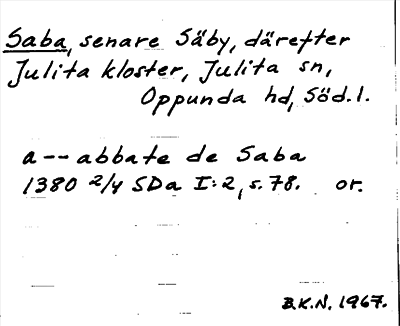 Saba, senare Säby, därefter
Julita kloster, Julita sn,
Oppunda hd, Söd. l.
a -- abbate de Saba
1380 2/4 SDa I:2, s. 78. or.
B.K.N. 1967.